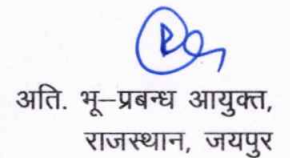 अति. भू–प्रबन्ध आयुक्त,
राजस्थान, जयपुर